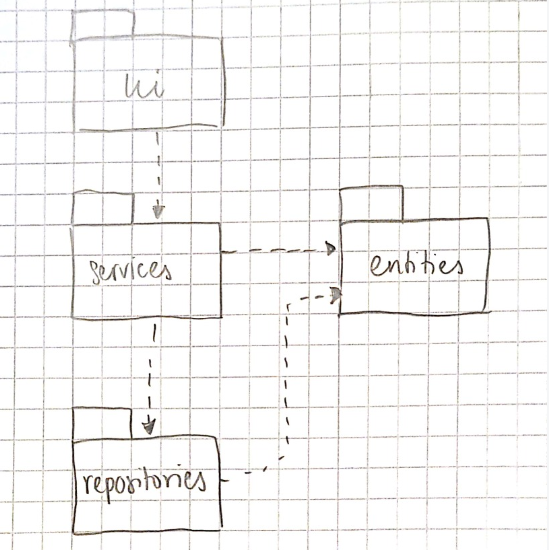 ui
services
entities
repositories